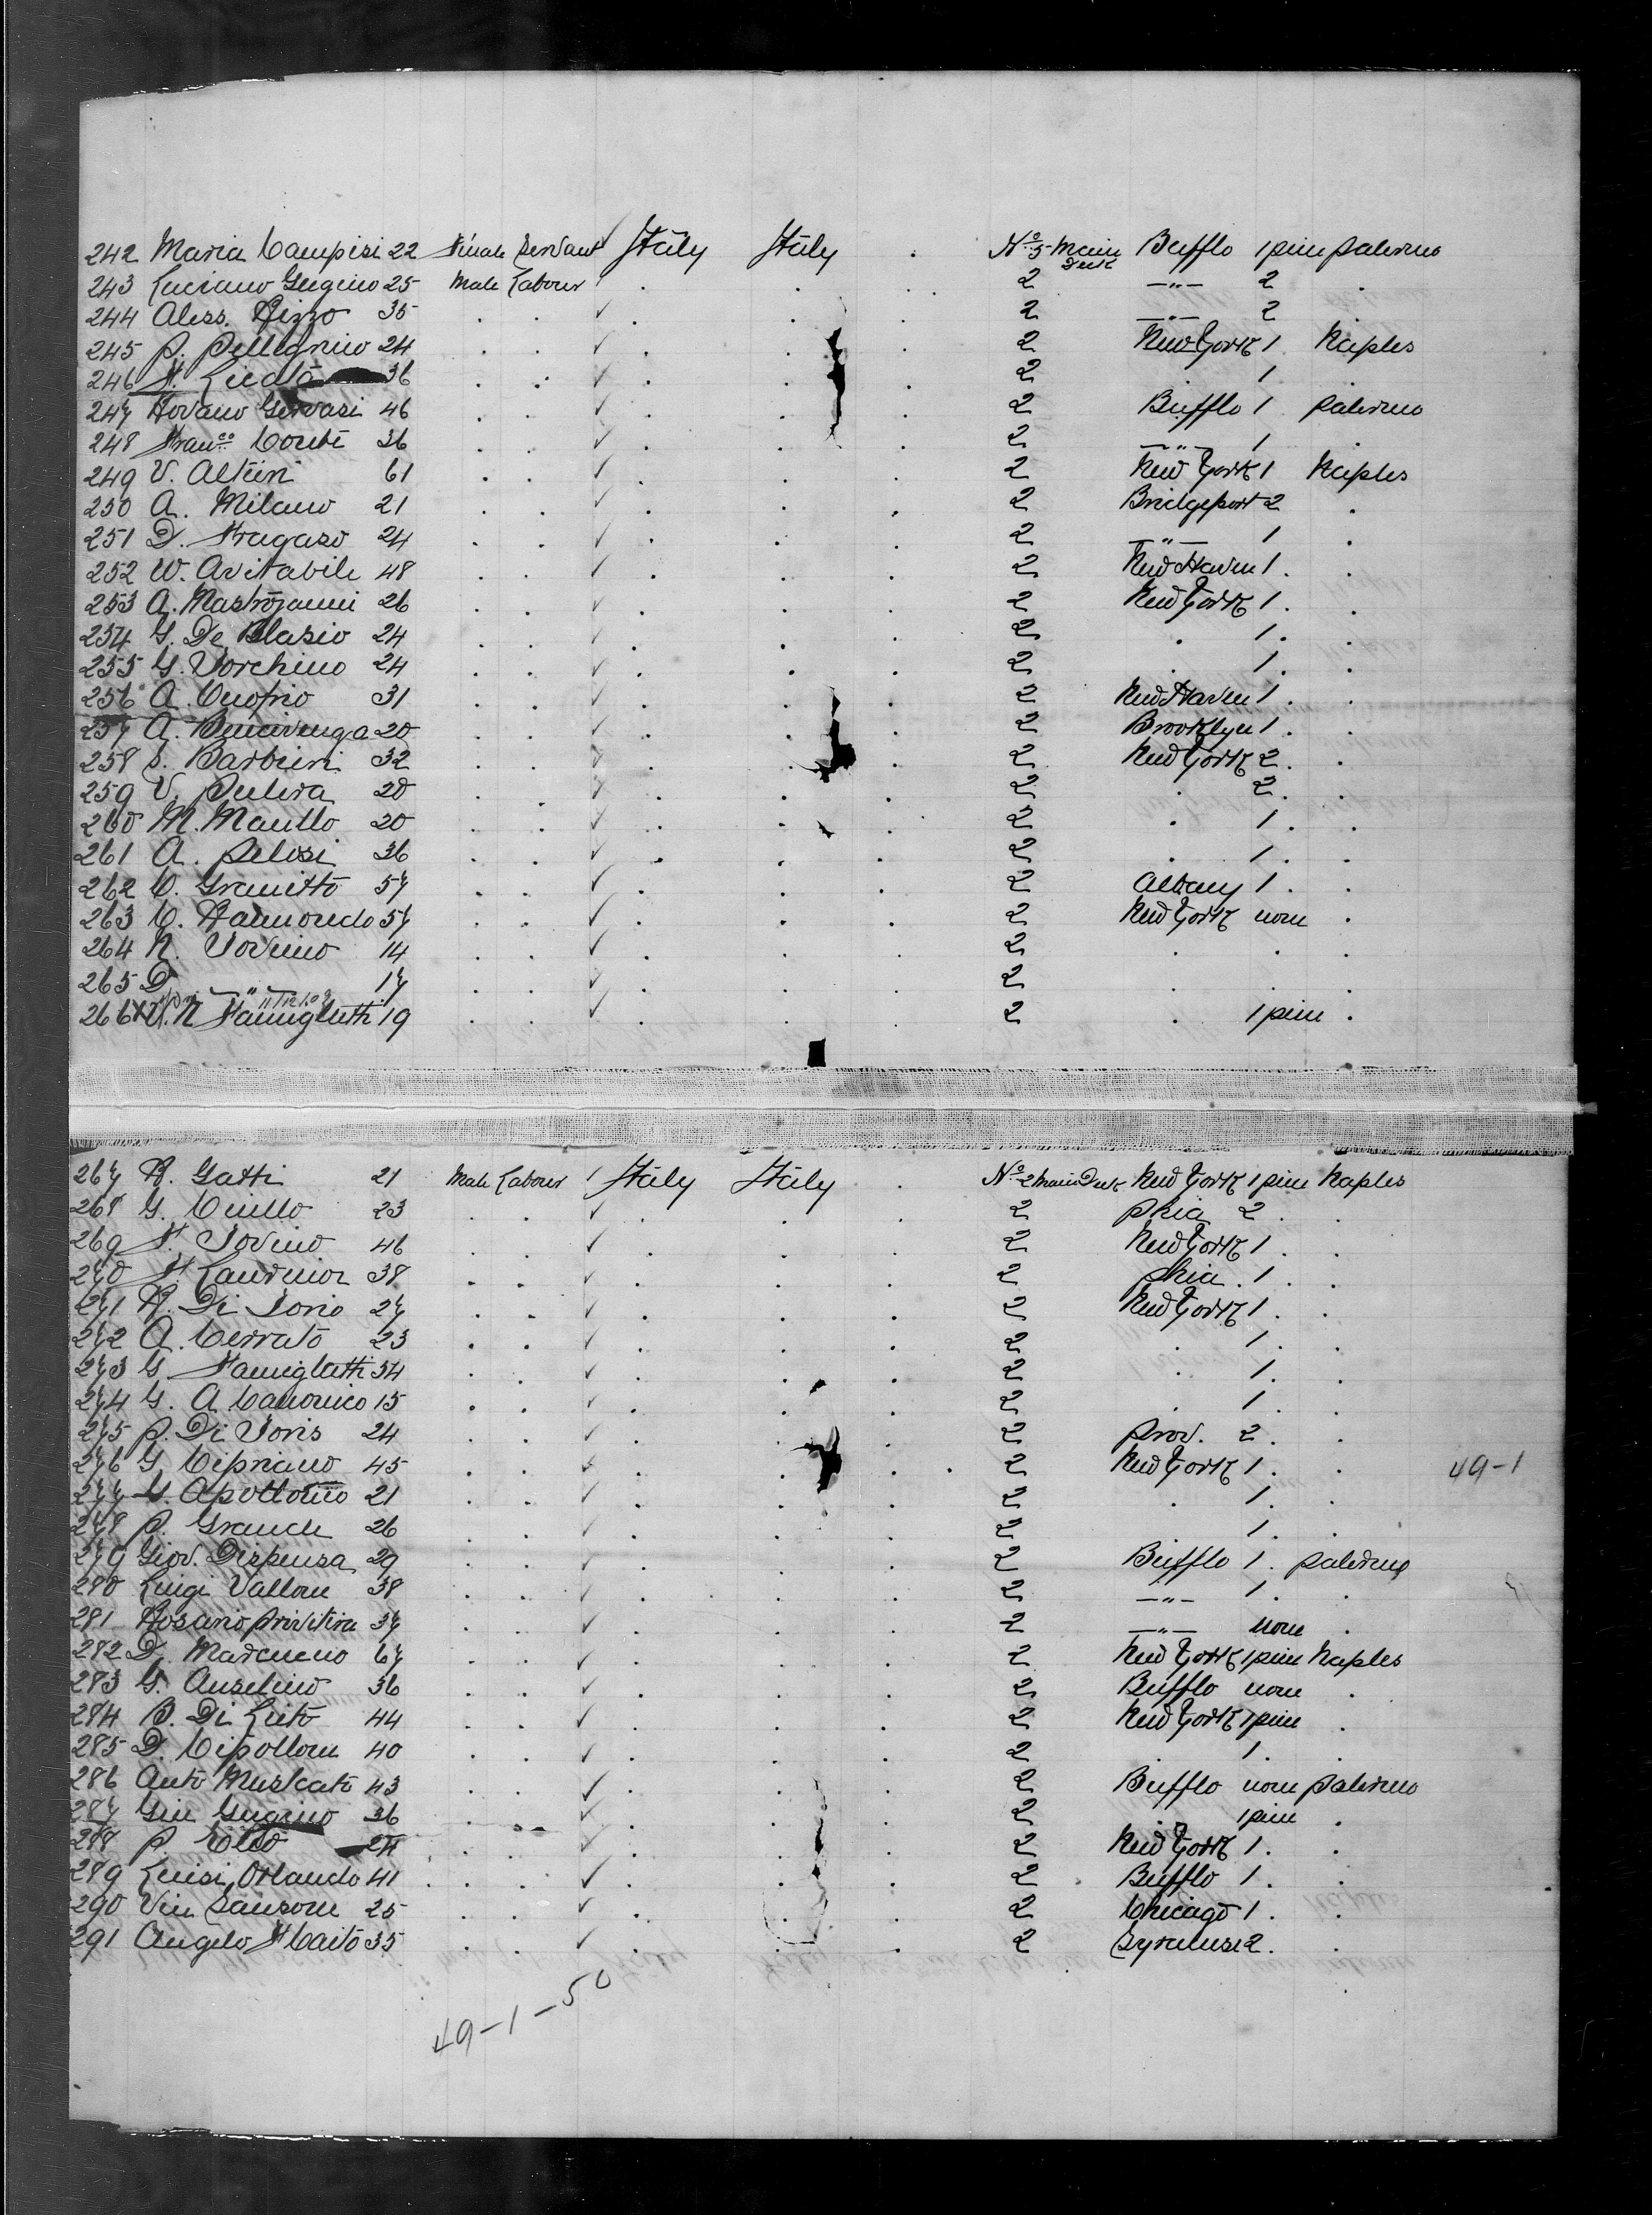 242 Maria Campisi 22 Female Servant ✓ Italy Italy . No 5 Main Deck Bufflo 1 pieces Palermo
243 Luciano Gugino 25 Male Labour . . . 2 —"— 2 .
244 Aless. Rizzo 35 . . ✓ . . 2 —"— 2
245 P. Pellegrino 24 . . ✓ . . . 2 New York 1 Naples
246 F. 36 . . ✓ . . 2 1 .
247 Gervasi 46 . . ✓ . . 2 Bufflo 1 Palermo
248 Franco Conti 36 . . ✓ . . 2 —"— 1 .
249 V. Altieri 61 . . ✓ . . . 2 New York 1 Naples
250 A. Milano 21 . . ✓ . . . 2 Bridgeport 2 .
251 D. Fragaso 24 . . ✓ . . . 2 —"— 1 .
252 W. Avitabile 48 . . ✓ . . . 2 New Haven 1 . .
253 A. Mastrojanni 26 . . ✓ . . . 2 New York 1 . .
254 G. De Blasio 24 . . ✓ . . . 2 . 1 . .
255 G. Vorchino 24 . . ✓ . . . 2 . 1 . .
256 A. Cuofrio 31 . . ✓ . . . 2 New Haven 1 . .
257 A. Bencivenga 20 . . ✓ . . 2 Brooklyn 1 . .
258 S. Barbieri 32 . . ✓ . . . 2 New York 2 . .
259 V. 20 . . ✓ . . . 2 . 2 . .
260 M. Maullo 20 . . ✓ . . 2 . 1 . .
261 A. Pelosi 36 . . ✓ . . . 2 . 1 . .
262 C. Granitto 57 . . ✓ . . . 2 Albany 1 . .
263 C. Raimondo 57 . . ✓ . . . 2 New York none .
264 N. Iovino 14 . . ✓ . . . 2 . . .
265 D. —"— 17 . . ✓ . . . 2 . . .
266 X V. N Famigletti 19 . . ✓ . . . 2 . 1 pieces .
267 R. Gatti 21 Male Labour ✓ Italy Italy . No 2 Main Deck New York 1 pieces Naples
268 G. Cirillo 23 . . ✓ . . . 2 Phia 2 . .
269 F. Iovino 46 . . ✓ . . . 2 New York 1 . .
270 F. 38 . . ✓ . . . 2 Phia . 1 . .
271 R. Di Iorio 27 . . ✓ . . . 2 New York 1 . .
272 A. Cerrato 23 . . ✓ . . . 2 . 1 . .
273 G. Famigletti 34 . . ✓ . . . 2 . 1 . .
274 G. A Canonico 15 . . ✓ . . . 2 . 1 . .
275 P. Di Ioris 24 . . ✓ . . 2 Prov. 2 . .
276 G. Cipriano 45 . . ✓ . . . 2 New York 1 . . 49-1
277 G. Apollonio 21 . . ✓ . . . 2 . 1 . .
278 P. Grande 26 . . ✓ . . . 2 1 . .
279 Giov. Dispensa 29 . . ✓ . . . 2 Bufflo 1 . Palermo
280 Luigi Vallone 38 . . ✓ . . . 2 —"— 1 . .
281 Rosario Privitira 37 . . ✓ . . . 2 —"— none .
282 D. 67 . . ✓ . . . 2 New York 1 pieces Naples
283 G. Anselmo 36 . . ✓ . . . 2 Bufflo none .
284 B. Di Lieto 44 . . ✓ . . . 2 New York 1 pieces .
285 D. Cipollone 40 . . ✓ . . . 2 1 . .
286 Anto Muscato 43 . . ✓ . . . 2 Bufflo none Palermo
287 Giu Gugino 36 . . ✓ . . 2 . 1 pieces .
288 P. 24 . . ✓ . . 2 New York 1 . .
289 Luisi Orlando 41 . . ✓ . . 2 Bufflo 1 . .
290 Vin Sansone 25 . . ✓ . . . 2 Chicago 1 . .
291 Angelo 35 . . ✓ . . . 2 Syracuse 2 . .
49-1-50